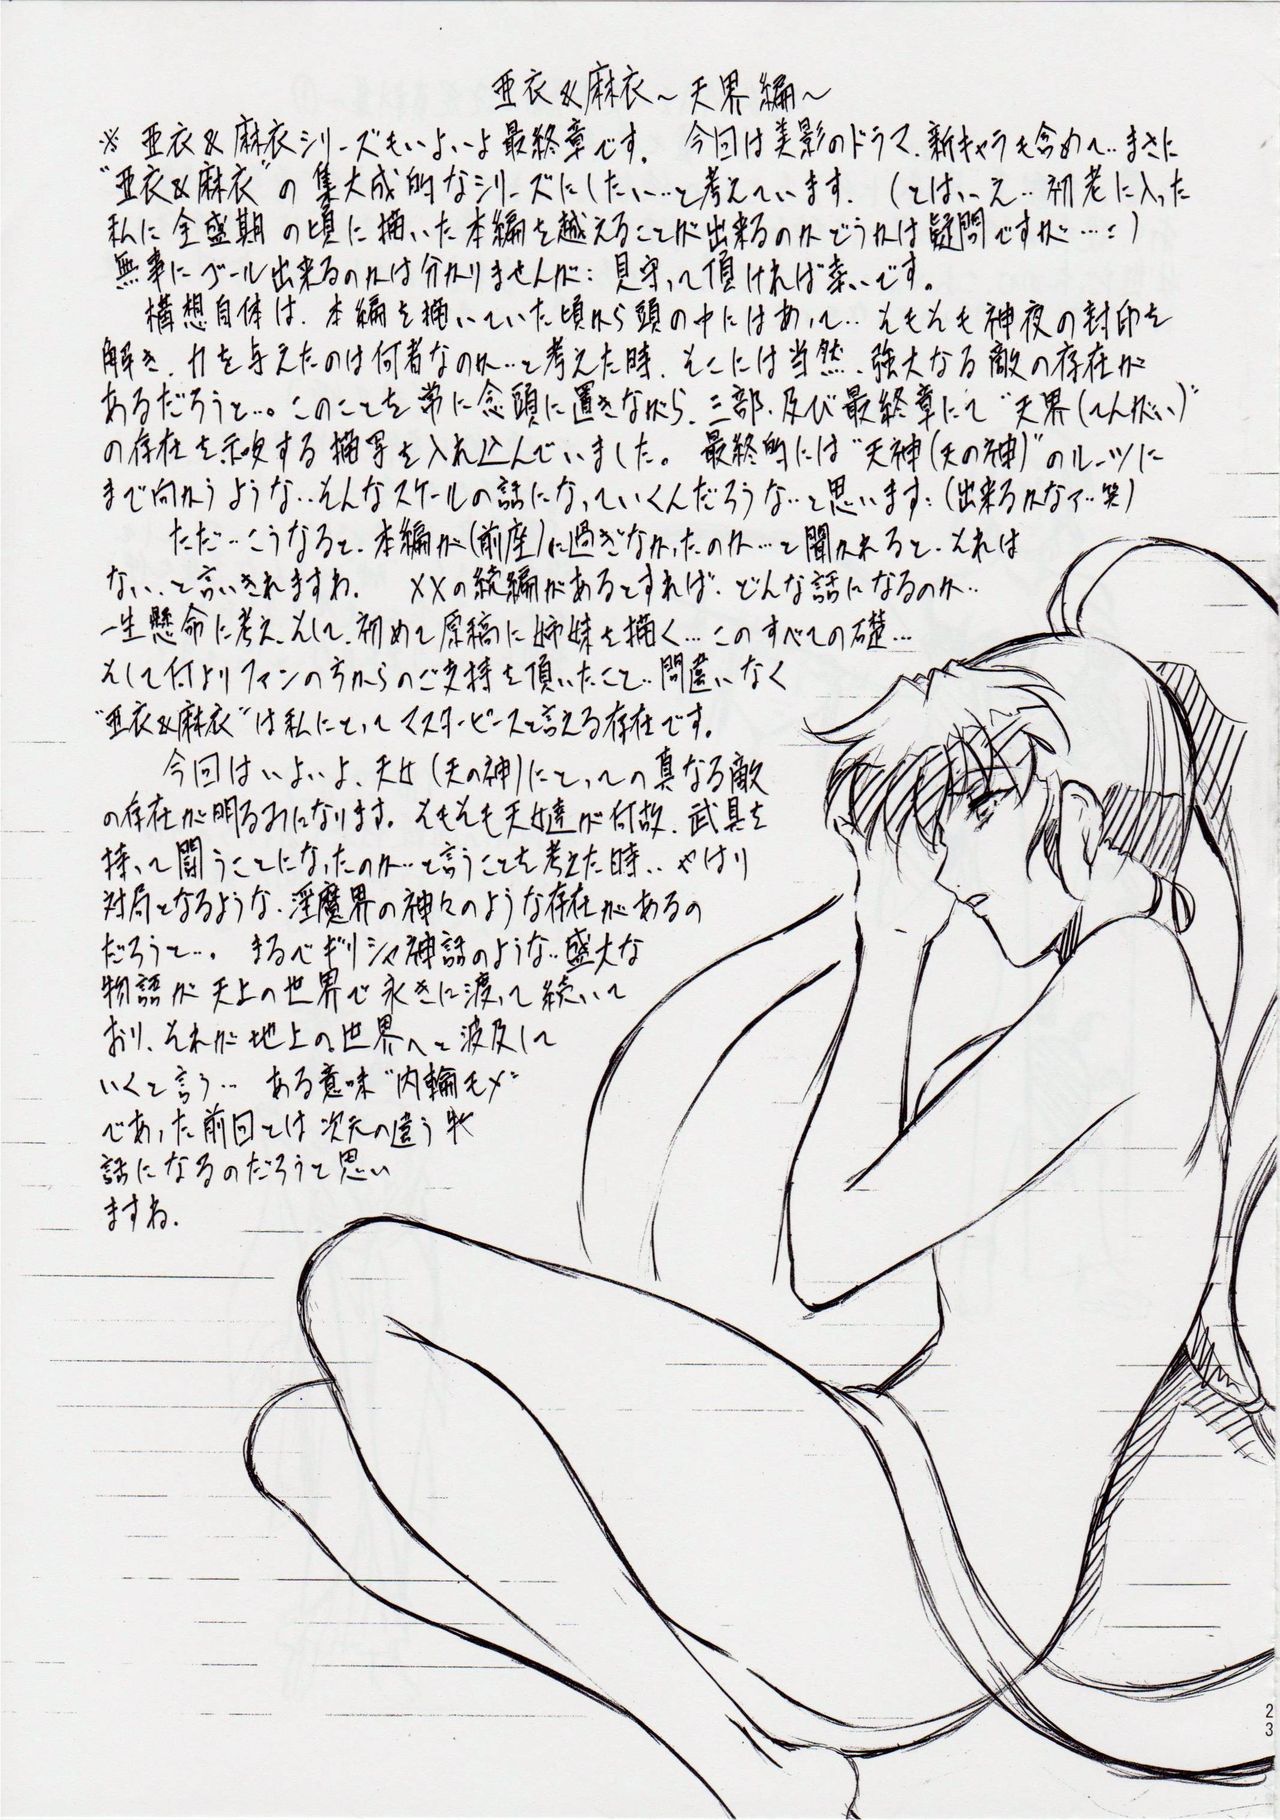 亜衣&麻衣～天界編～
※ 亜衣&麻衣シリーズもいよいよ最終章です. 今回は美影のドラマ.新キャラも含めて‥まさに
"亜衣&麻衣"の集大成的なシリーズにしたい…と考えています. (とはいえ‥初老に入った
私に全盛期の頃に描いた本編を越えることが出来るのかどうかは疑問ですが…:)
無事にゴール出来るのかは分かりませんが: 見守って頂ければ幸いです。
構想自体は. 本編を描いていた頃から頭の中にはあって‥ そもそも神夜の封印を
解き.力を与えたのは何者なのか…と考えた時. そこには当然.強大なる敵の存在が
あるだろうと…。このことを常に念頭に置きながら.三部.及び最終章にて"天界(てんがい)"
の存在を示唆する描写を入れ込んでいました。最終的には"天神(天の神)"のルーツに
まで向かうような‥そんなスケールの話になっていくんだろうな…と思います:(出来るかなァ…笑)
ただ‥こうなると.本編が(前座)に過ぎなかったのか…と聞かれると.それは
ない‥と言いきれますね. XXの続編があるとすれば.どんな話になるのか‥
一生懸命に考え.そして.初めて原稿に姉妹を描く…このすべての礎…
そして何よりファンの方からのご支持を頂いたこと‥間違いなく
"亜衣&麻衣"は私にとってマスターピースと言える存在です。
今回はいよいよ.天女(天の神)にとっての真なる敵
の存在が明るみになります。そもそも天女達が何故.武具を
持って闘うことになったのか…と言うことを考えた時‥やはり
対局となるような.淫魔界の神々のような存在があるの
だろうと…。まるでギリシャ神話のような‥盛大な
物語が天上の世界で永きに渡って続いて
おり.それが地上の世界へと波及して
いくと言う… ある意味"内輪モメ"
であった前回とは次元の違う
話になるのだろうと思い
ますね.
23